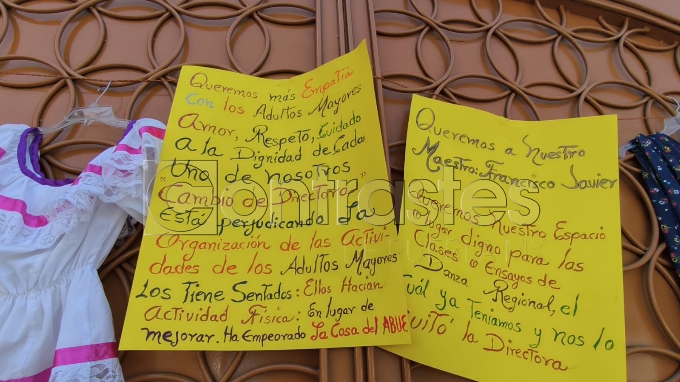 Queremos más Empatía
Con los Adultos Mayores
Amor, Respeto, Cuidado
a la Dignidad de Cada
Uno de nosotros
"Cambio de Directora"
Está perjudicando La
Organización de las Activi-
dades de los Adultos Mayores
Los Tiene Sentados: Ellos Hacían
Actividad Física: En lugar de
mejorar. Ha Empeorado La Casa del ABUE
Queremos a Nuestro
Maestro: Francisco Javier
Queremos Nuestro Espacio
o lugar digno para las
Clases o Ensayos de
Danza Regional, el
Cuál ya Teníamos y nos lo
quitó la Directora
Contrastes